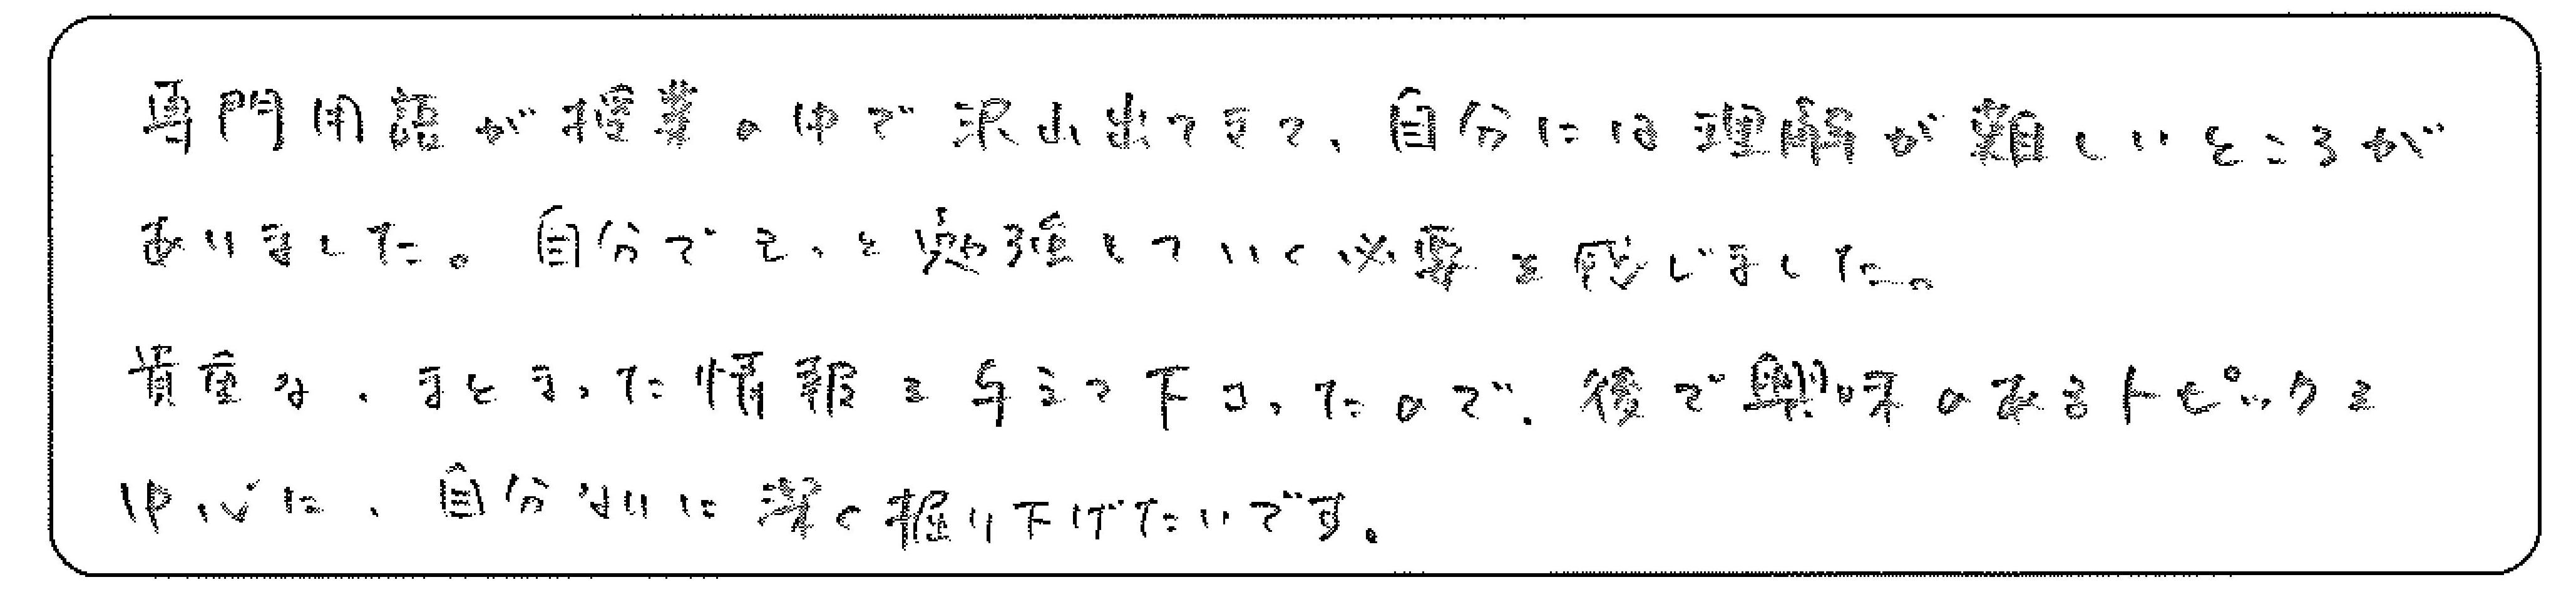 専門用語が授業の中で沢山出てきて、自分には理解が難しいところが
ありました。自分でもっと勉強していく必要を感じました。
貴重な、まとまった情報を与えて下さったので、後で興味のあるトピックを
中心に、自分なりに深く掘り下げたいです。